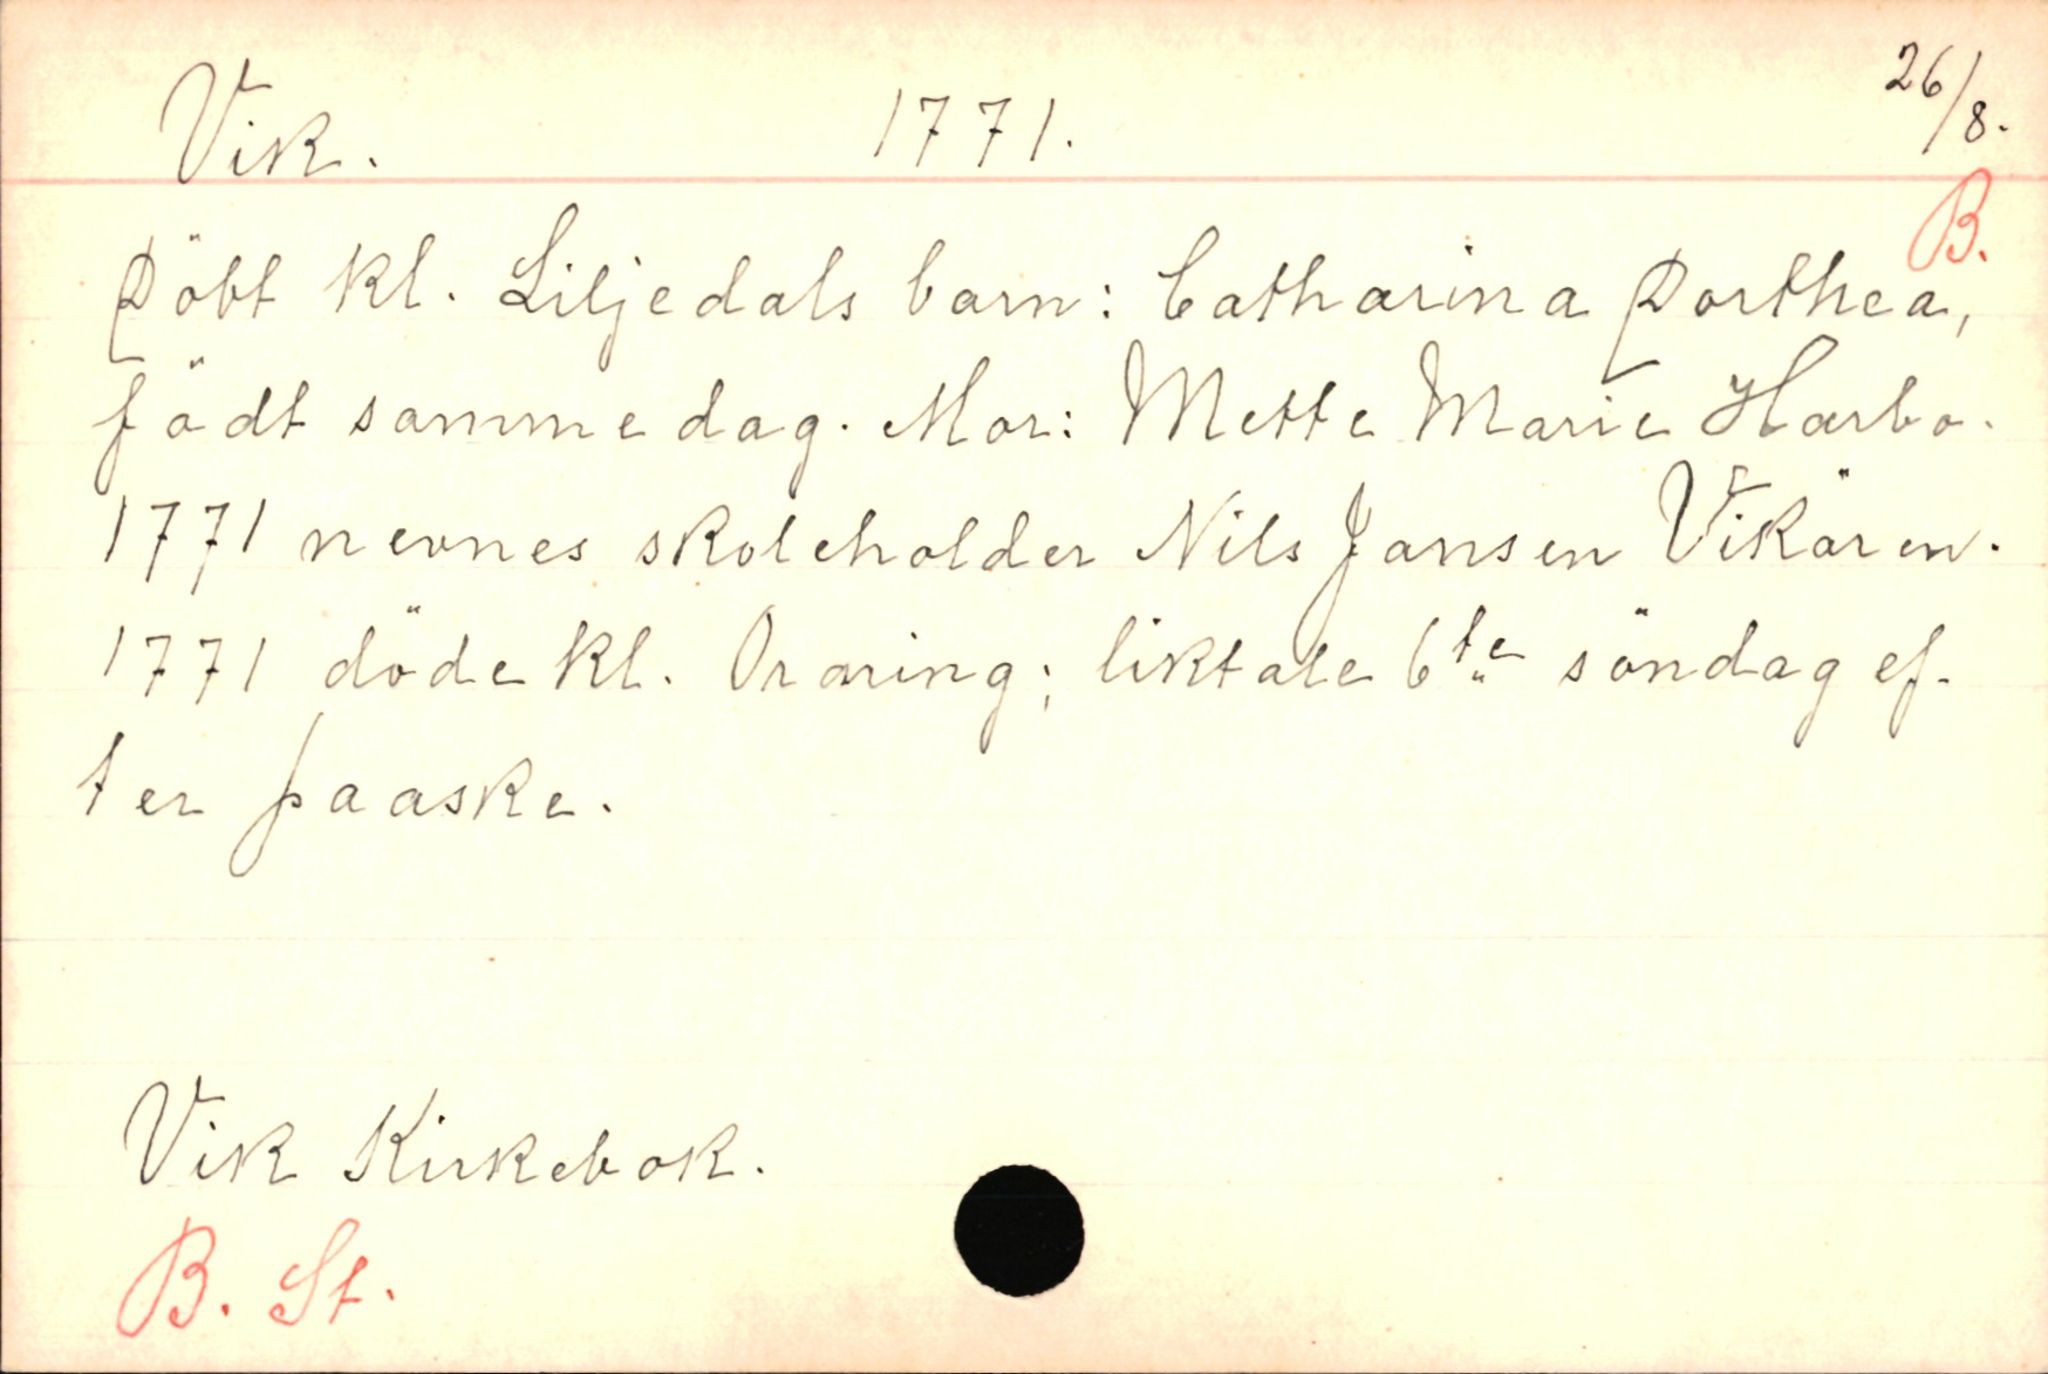 Vik. 1771. 26/8.
B.
Döbt kl. Liljedals barn: Catharina Dorthea,
födt samme dag. Mor: Mette Marie Harbo.
1771 nevnes skoleholder Nils Jansen Vikören.
1771 döde kl. Ovaring; liktale 6te söndag ef-
ter paaske.
Vik Kirkebok.
B. St.